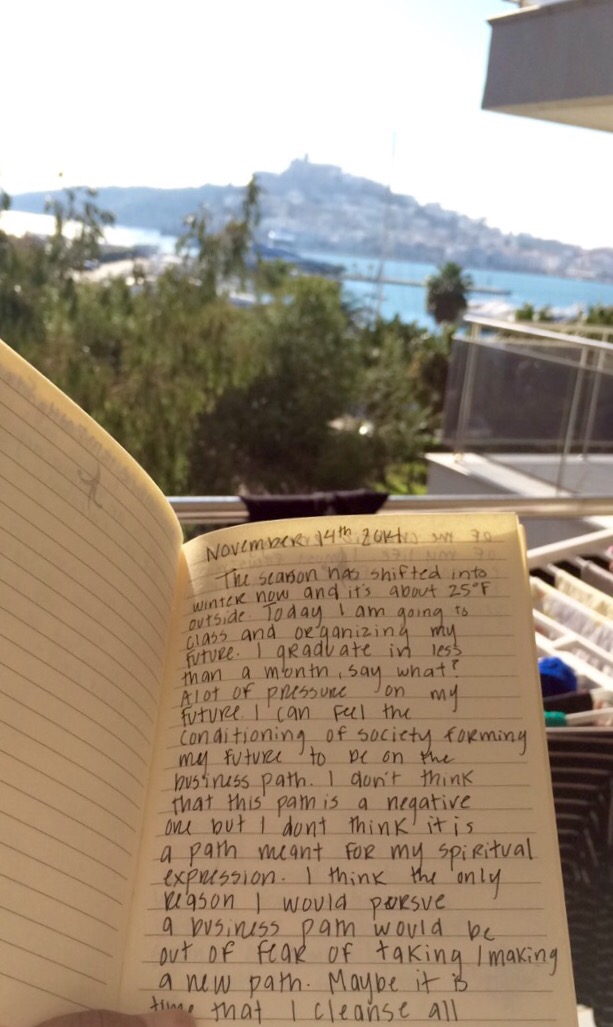 November 14th
The season has shifted into
winter now and it's about 25°F
outside. Today I am going to
class and organizing my
future. I graduate in less
than a month, say what?
Alot of pressure on my
future. I can feel the
conditioning of society forming
my future to be on the
business path. I don't think
that this path is a negative
one but I dont think it is
a path meant for my spiritual
expression. I think the only
reason I would pursue
a business path would be
out of fear of taking/making
a new path. Maybe it is
time that I cleanse all